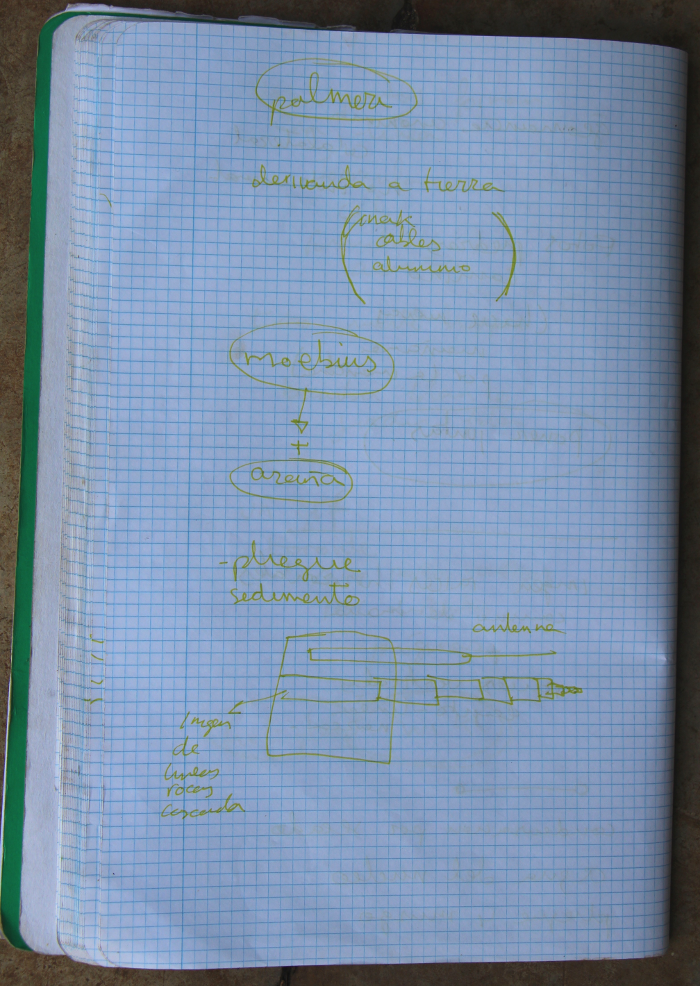 palmera
demanda a tierra
cables
aluminio
moebius
+
araña
- pliegue
sedimento
antenna
de
lineas
rocas
cascada